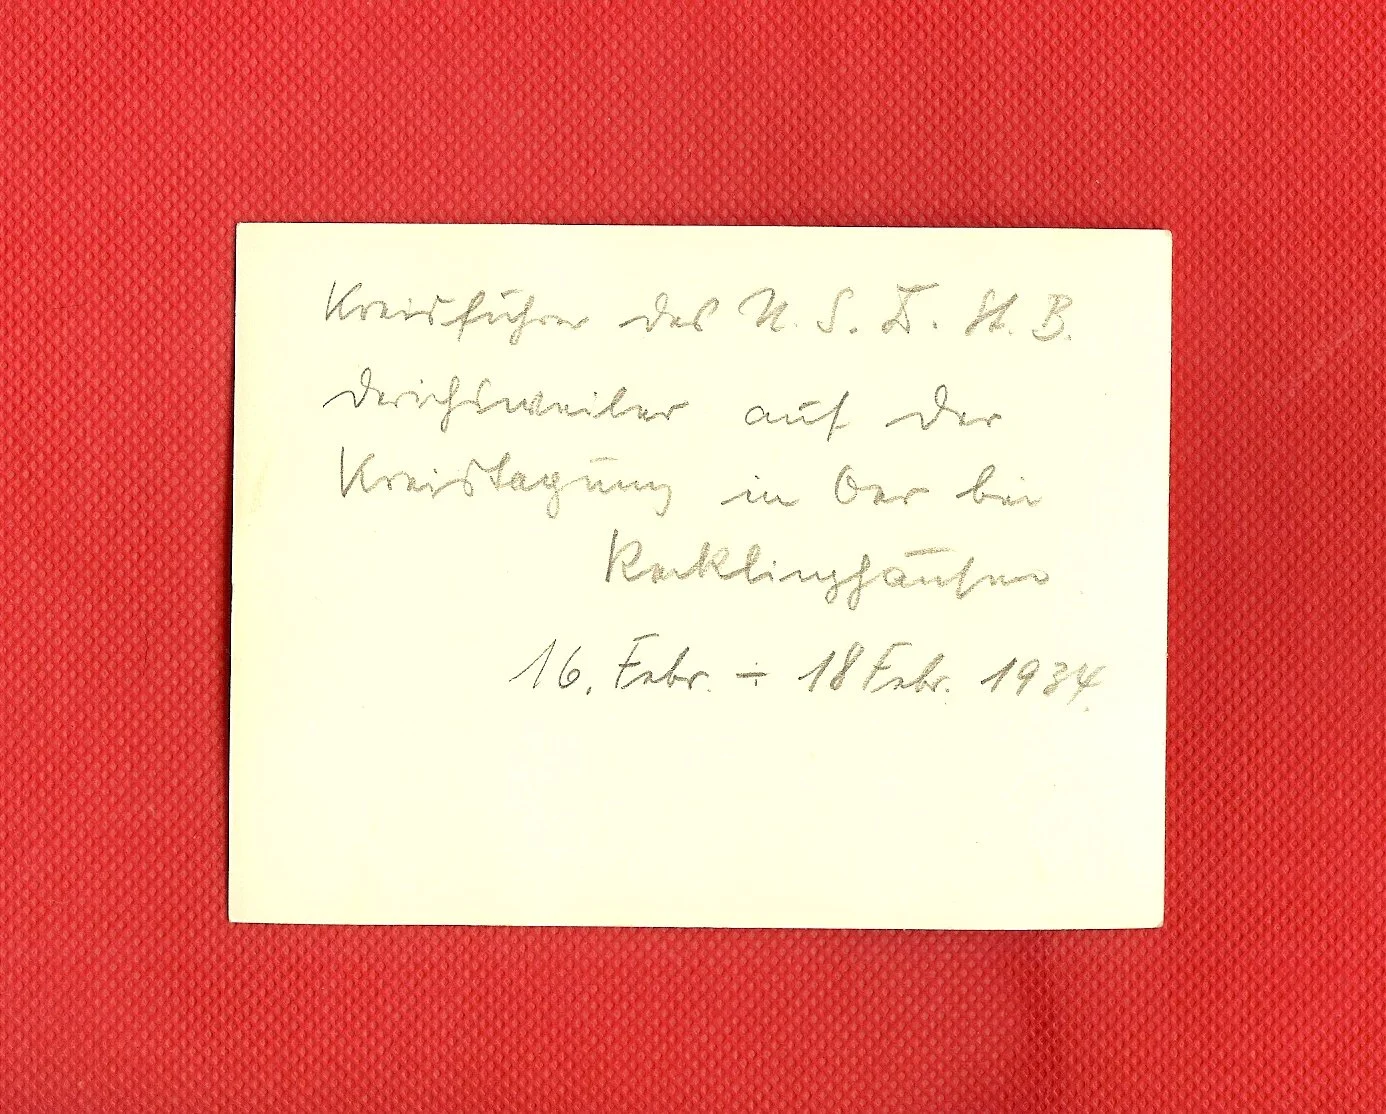 Kreisführer des N. S. D. St. B.
Derichsweiler auf der
Kreistagung in Oer bei
Recklinghausen
16. Febr. ÷ 18 Febr. 1934.